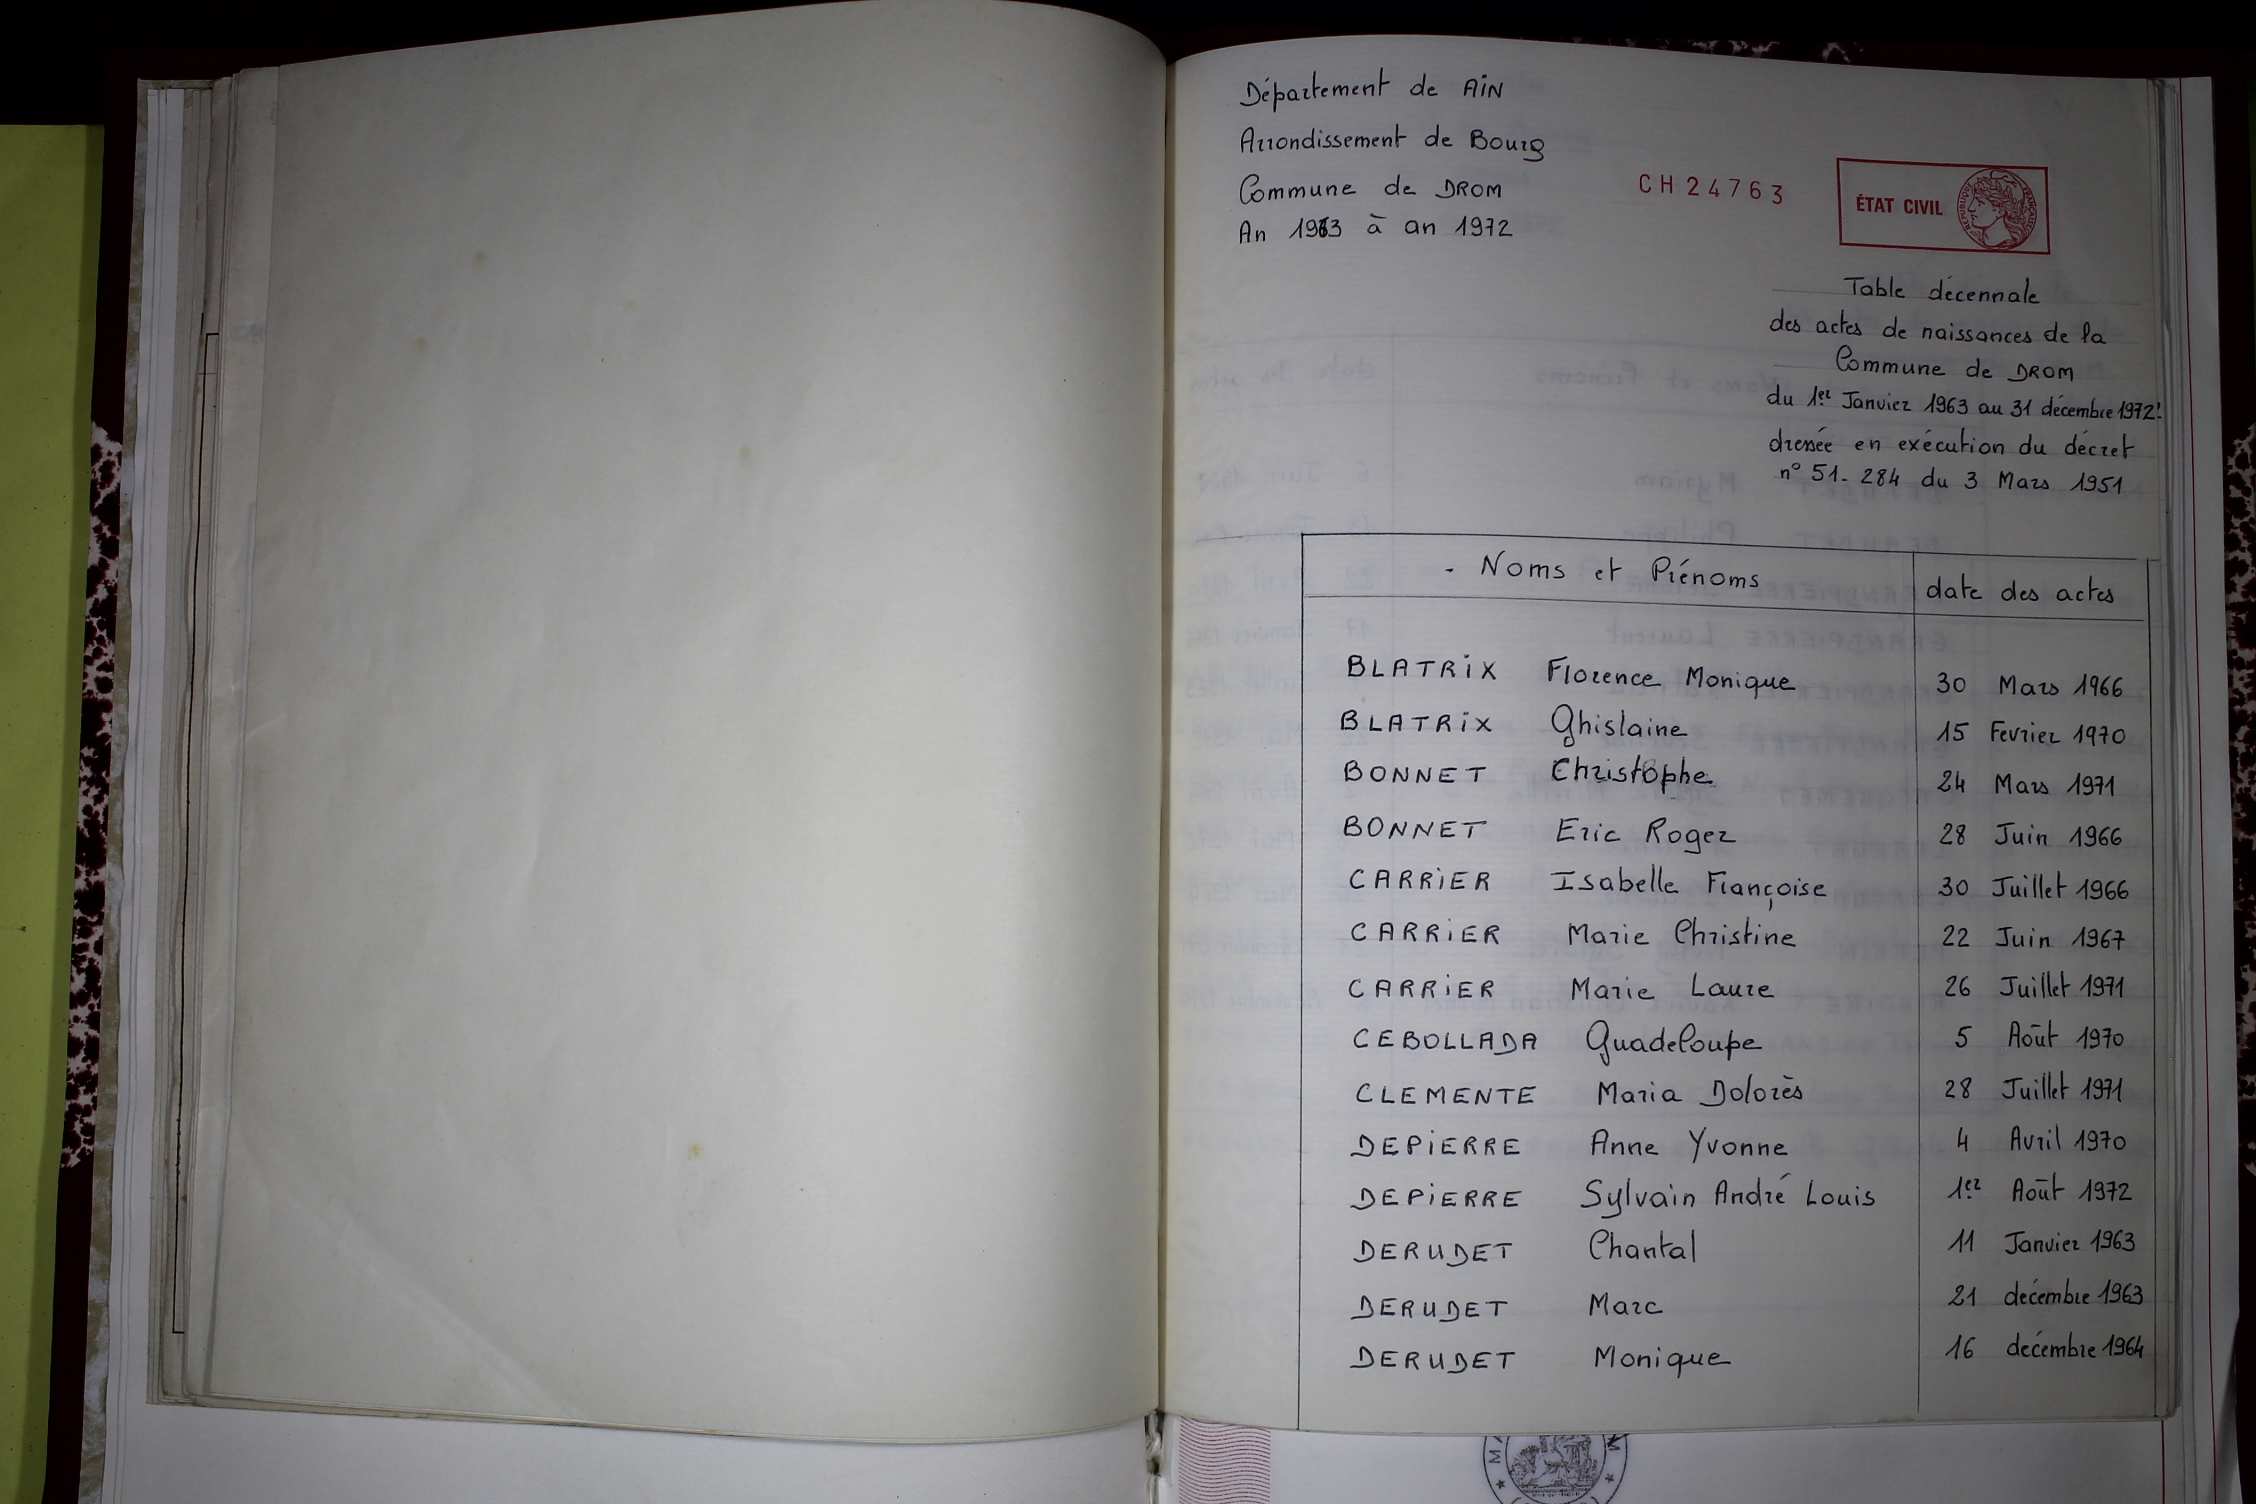 Département de AIN
Arrondissement de Bourg
Commune de DROM
An 1963 à an 1972
CH24763
ÉTAT CIVIL
Table décennale
des actes de naissances de la
Commune de DROM
du 1er Janvier 1963 au 31 décembre 1972
dressée en exécution du décret
n° 51-284 du 3 Mars 1951
- Noms et Prénoms date des actes
BLATRIX Florence Monique 30 Mars 1966
BLATRIX Ghislaine 15 Fevrier 1970
BONNET Christophe 24 Mars 1971
BONNET Eric Roger 28 Juin 1966
CARRIER Isabelle Françoise 30 Juillet 1966
CARRIER Marie Christine 22 Juin 1967
CARRIER Marie Laure 26 Juillet 1971
CEBOLLADA Guadeloupe 5 Août 1970
CLEMENTE Maria Dolorès 28 Juillet 1971
DEPIERRE Anne Yvonne 4 Avril 1970
DEPIERRE Sylvain André Louis 1er Août 1972
DERUDET Chantal 11 Janvier 1963
DERUDET Marc 21 décembre 1963
DERUDET Monique 16 décembre 1964